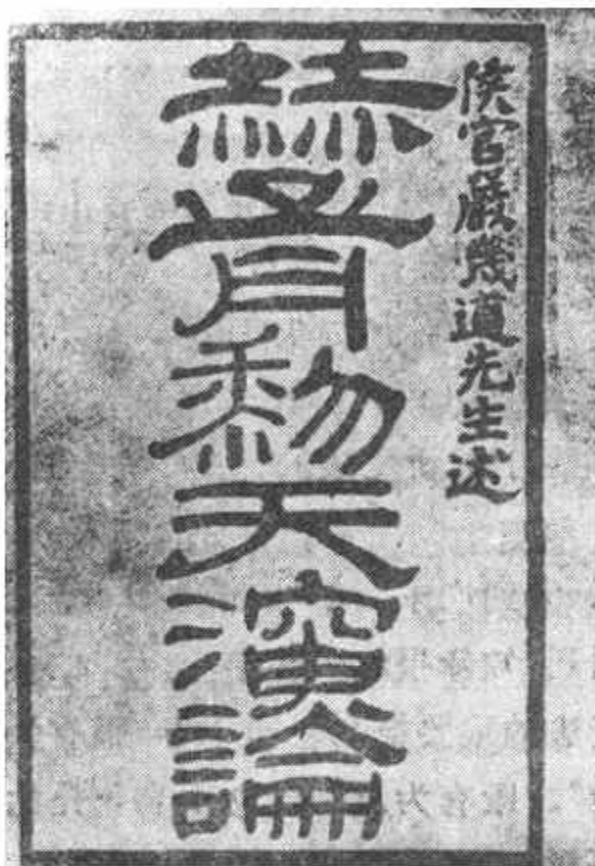 侯官嚴幾道先生述
赫胥黎天演論